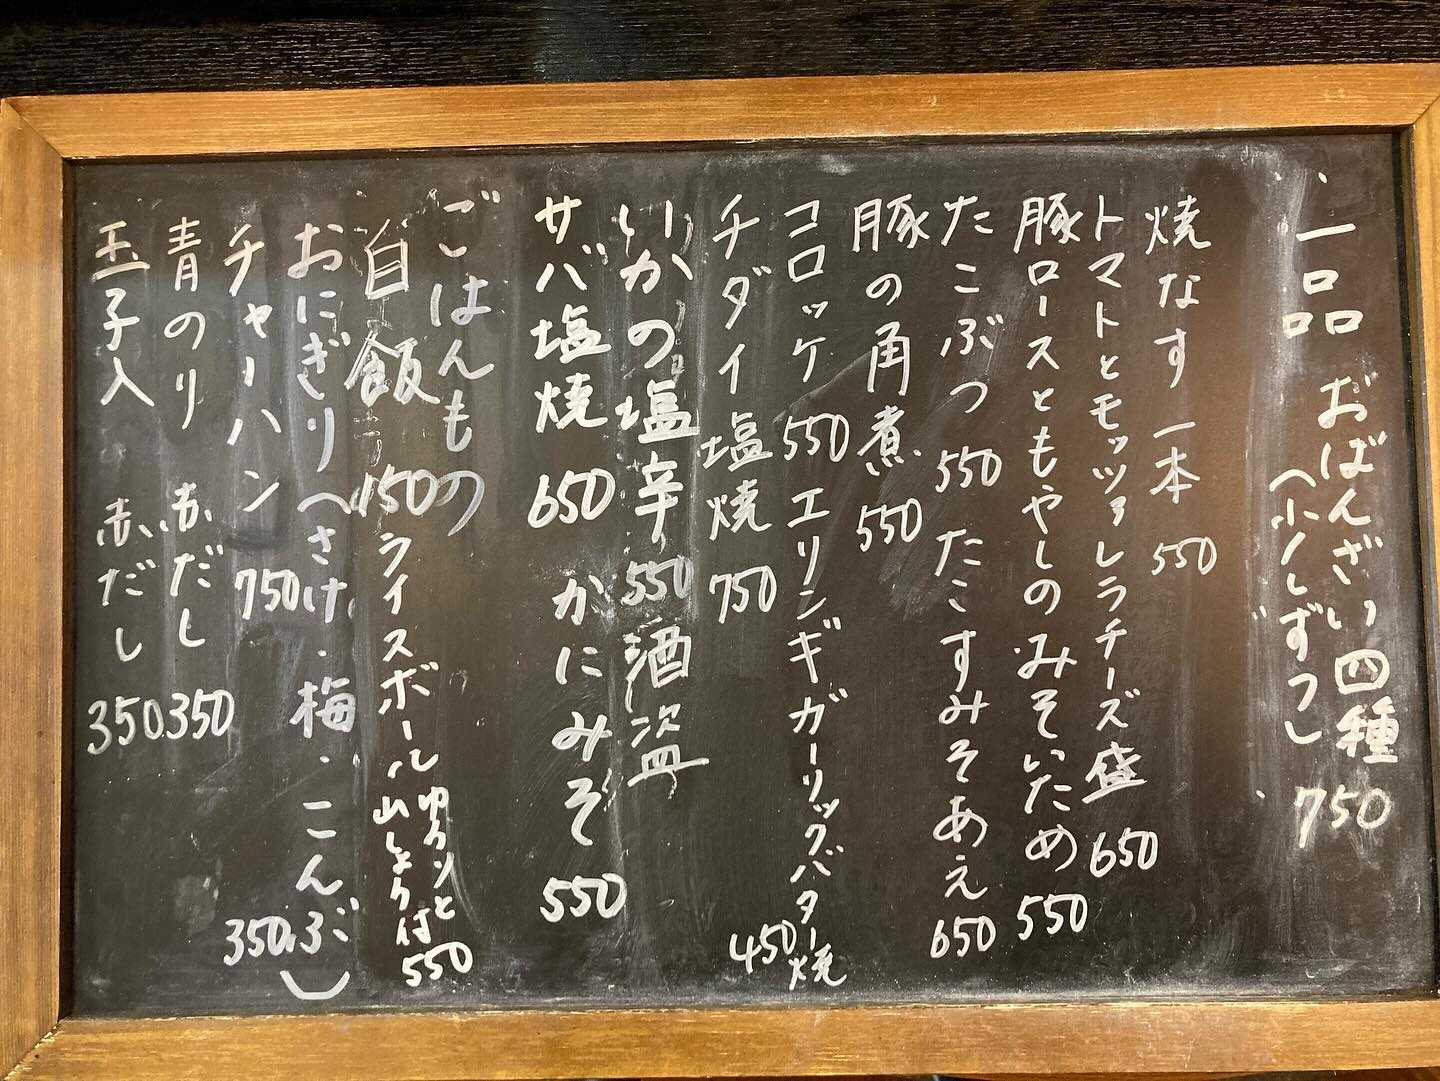 一品 おばんざい四種 750
(少しずつ)
焼なす 一本 550
トマトとモッツァレラチーズ盛 650
豚ロースともやしのみそいため 550
たこぶつ 550 たこすみそあえ 650
豚の角煮 550
コロッケ 550 エリンギガーリックバター焼 450
チダイ塩焼 750
いかの塩辛 550 酒盗
サバ塩焼 650 かにみそ 550
ごはんもの
白飯 150 ライスボール ゆかりと山しょう付 550
おにぎり(さけ・梅・こんぶ) 350
チャーハン 750
青のり 赤だし 350
玉子入 赤だし 350